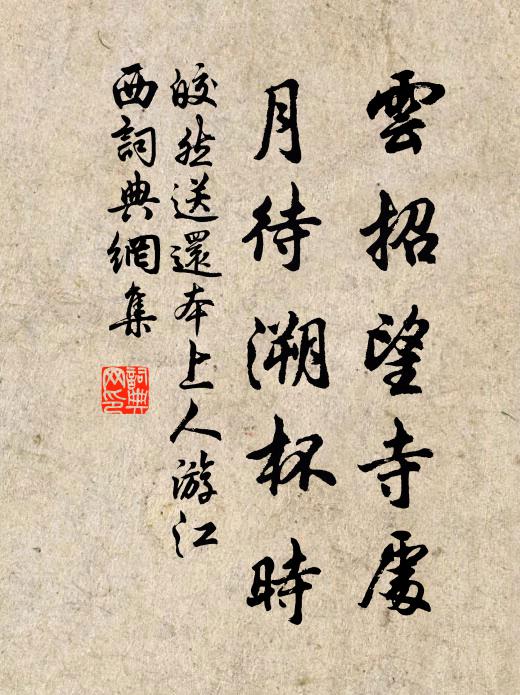 雲招望寺處
月待溯杯時
皎然送還本上人游江
西詞典網集
詞典網印